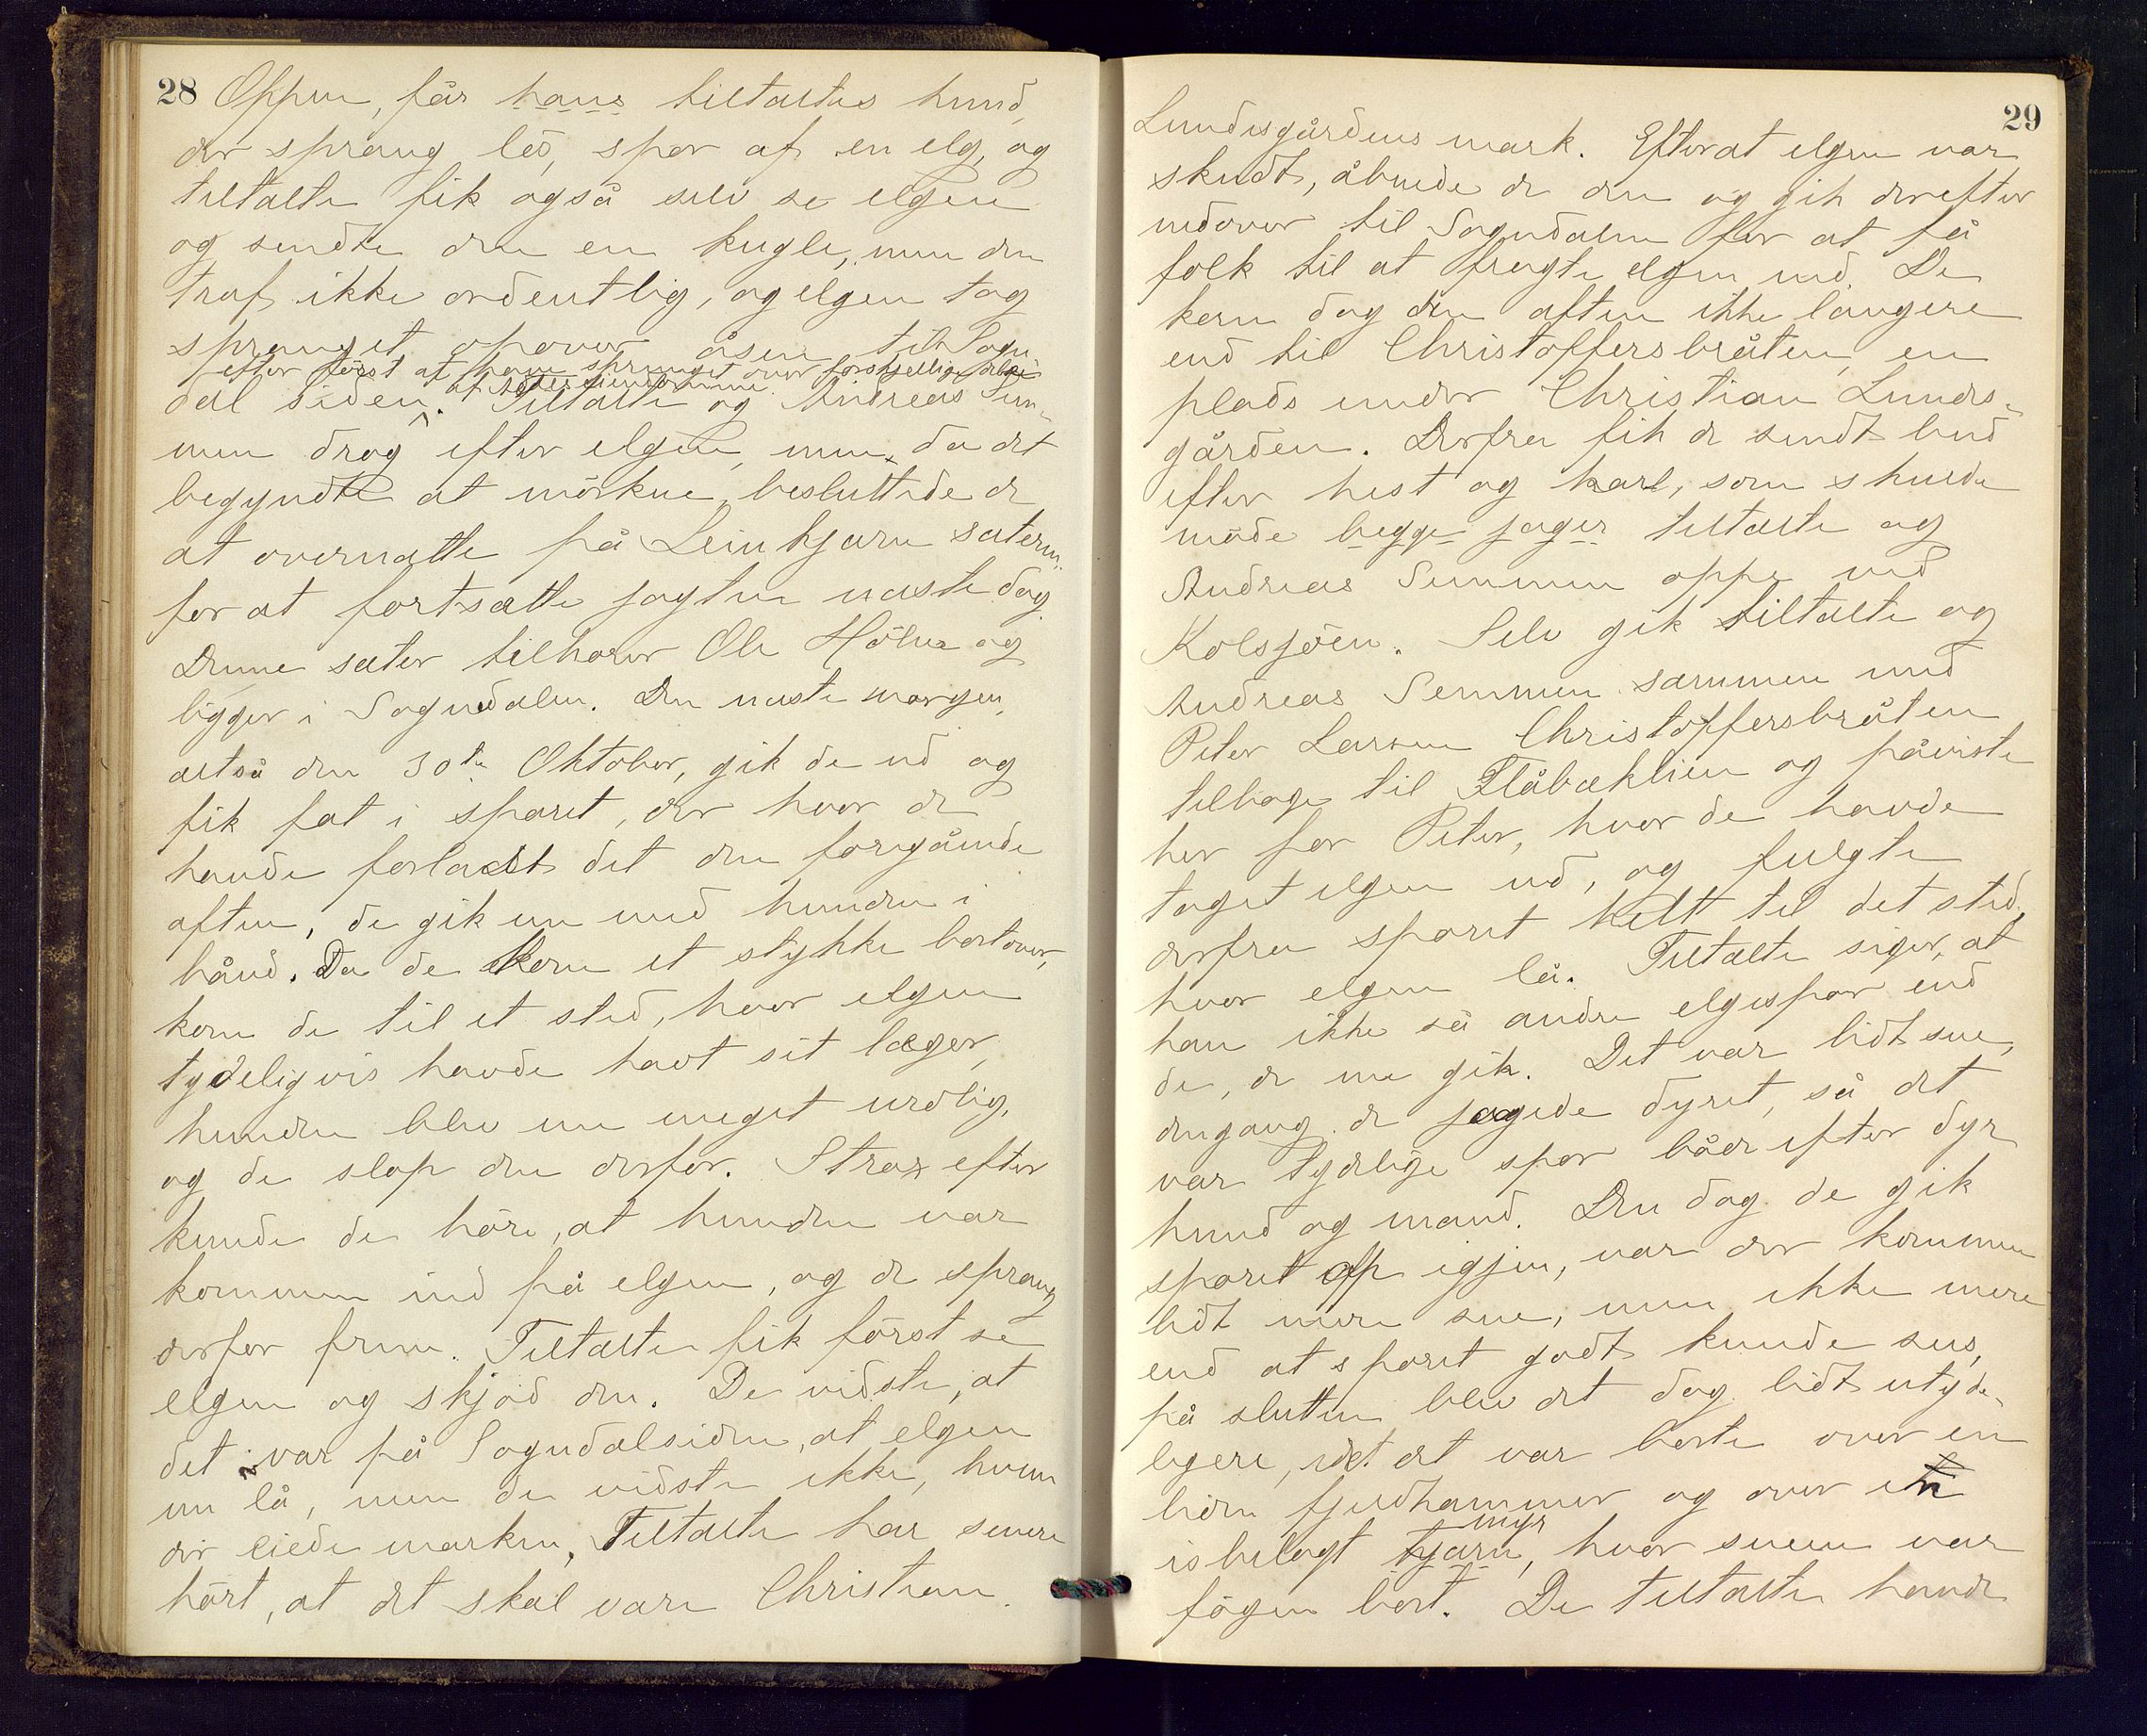 28
Oppen, får hans tiltaltes hund,
der sprang lös, spor af en elg, og
tiltalte fik også selv se elgen
og sendte den en kugle, men den
traf ikke ordentlig, og elgen tog
spranget opover åsen til Sogn
efter först at have sprunget over forskjellige
af
dal siden. Tiltalte og Andreas Sem-
men drog efter elgen, men da det
begyndte at mörkne, besluttede de
at overnatte på Leinkjærn sæteren
for at fortsætte jagten næste dag.
Denne sæter tilhører Ole Hölne og
ligger i Sogndalen. Den næste morgen,
altså den 30te Oktober, gik de ud og
fik fat i sporet, der hvor de
havde forladt det den foregående
aften, de gik nu med hunden i
bånd. Da de kom et stykke bortover,
kom de til et sted, hvor elgen
tydeligvis havde havt sit læger,
hunden blev nu meget urolig,
og de slap den derfor. Strax efter
kunde de höre, at hunden var
kommen ind på elgen, og de sprang
derfor frem. Tiltalte fik först se
elgen og skjöd den. De vidste, at
det var på Sogndalsiden, at elgen
nu lå, men de vidste ikke, hvem
der eiede marken, Tiltalte har senere
hört, at det skal være Christian
29
Lundesgårdens mark. Efterat elgen var
skudt, åbnede de den og gik derefter
nedover til Sogndalen for at få
folk til at fragte elgen ned. De
kom dog den aften ikke længere
end til Christoffersbråten, en
plads under Christian Lundes-
gården. Derfra fik de sendt bud
efter hest og karl, som skulde
möde begge jager tiltalte og
Andreas Semmen oppe ved
Kolsjöen. Selv gik tiltalte og
Andreas Semmen sammen med
Peter Larsen Christoffersbråten
tilbage til Flåbæklien og påviste
her for Peter, hvor de havde
taget elgen ud, og fulgte
derfra sporet helt til det sted,
hvor elgen lå. Tiltalte siger, at
han ikke så andre elgespor end
de, de nu gik. Det var lidt sne,
dengang de jagede dyret, så det
var tydelige spor både efter dyr
hund og mand. Den dag de gik
sporet op igjen, var der kommen
lidt mere sne, men ikke mere
end at sporet godt kunde sees,
på slutten blev det dog lidt utyde-
ligere, idet det var borte over en
liden fjeldhammer og over en
myr
isbelagt tjærn, hvor sneen var
fögen bort. De tiltalte havde